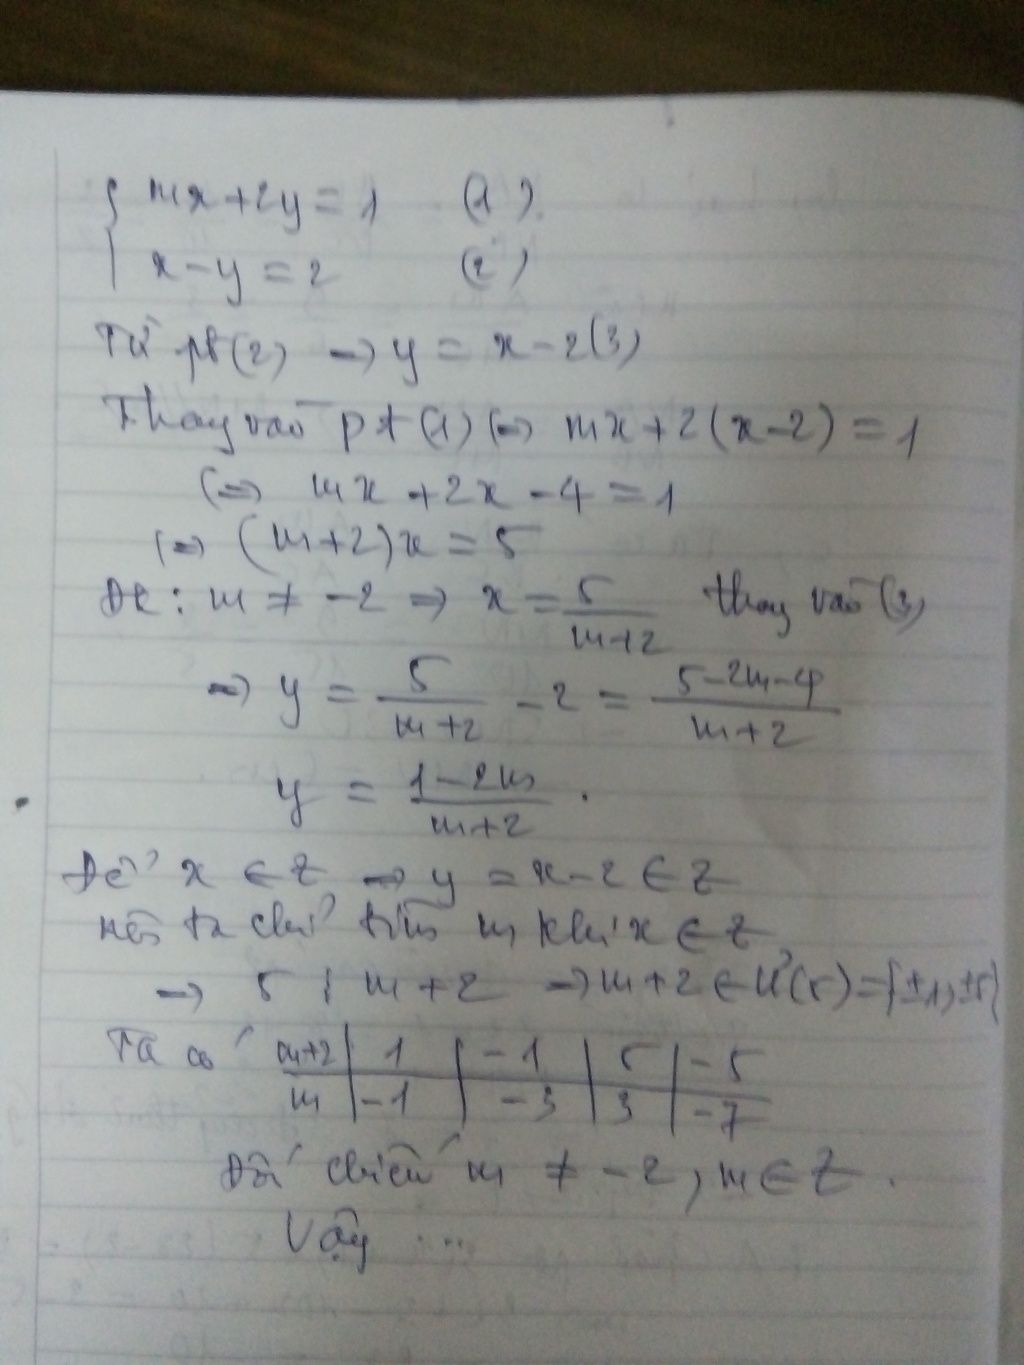 { mx + 2y = 1 (1)
x - y = 2 (2)
Từ pt(2) => y = x - 2 (3)
Thay vào pt (1) <=> mx + 2(x-2) = 1
<=> mx + 2x - 4 = 1
<=> (m+2)x = 5
ĐK: m ≠ -2 => x = 5/(m+2) thay vào (3)
=> y = 5/(m+2) - 2 = (5-2m-4)/(m+2)
y = (1-2m)/(m+2) .
Để x ∈ Z => y = x - 2 ∈ Z
nên ta chỉ tìm m khi x ∈ Z
=> 5 ⋮ m+2 => m+2 ∈ Ư(5) = {±1, ±5}
Ta có m+2 | 1 | -1 | 5 | -5
m | -1 | -3 | 3 | -7
Đối chiếu m ≠ -2, m ∈ Z .
Vậy ...